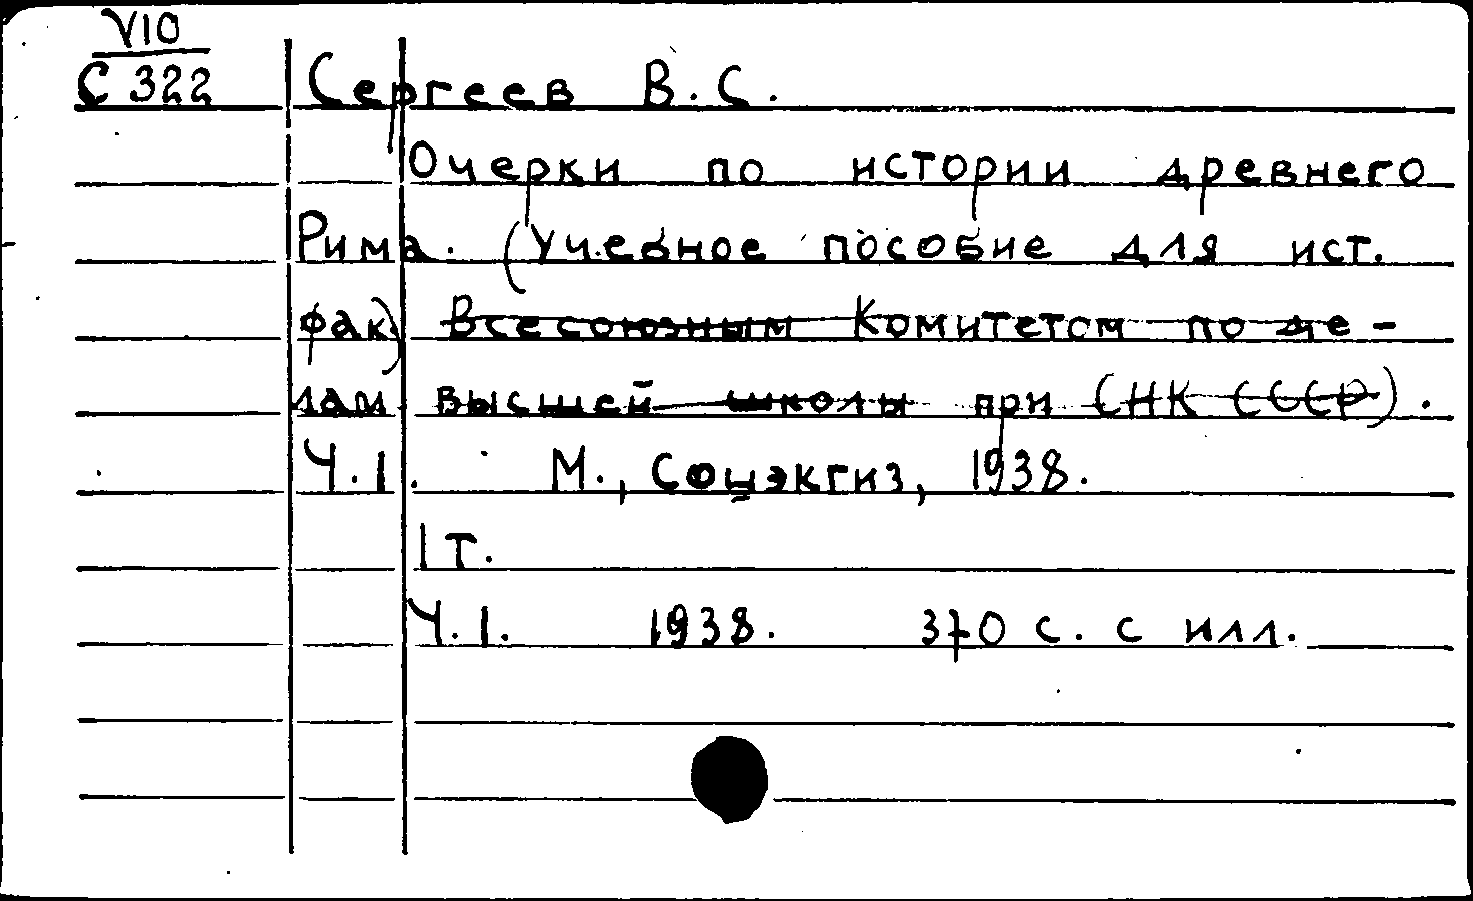 V10
С 322
Сергеев В. С.
Очерки по истории древнего
Рима. (Учебное пособие для ист.
фак) Всесоюзным Комитетом по де-
лам высшей школы при (СНК СССР).
Ч. 1. М., Соцэкгиз, 1938.
1 т.
Ч. 1. 1938. 370 с. с илл.